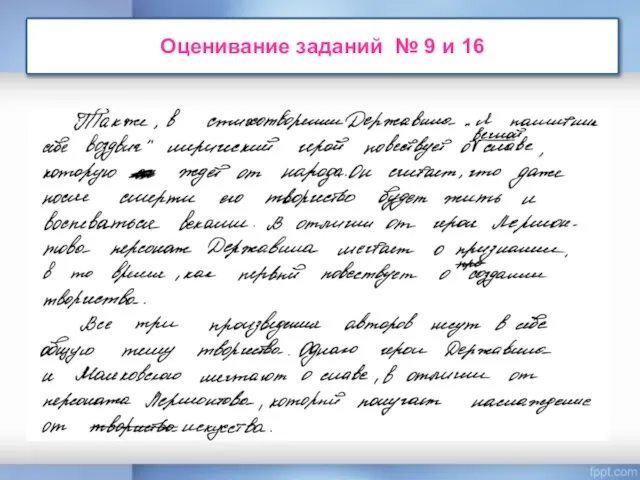 Оценивание заданий № 9 и 16
Также, в стихотворении Державина „Я памятник
вечной
себе воздвиг" лирический герой повествует о славе,
которую ждёт от народа. Он считает, что даже
после смерти его творчество будет жить и
воспеваться веками. В отличии от героя Лермон-
това персонаж Державина мечтает о признании,
в то время, как первый повествует о создании
творчества.
Все три произведения авторов несут в себе
общую тему творчества. Однако герои Державина
и Маяковского мечтают о славе, в отличии от
персонажа Лермонтова, который получает наслаждение
от творчества искусства.
fppt.com